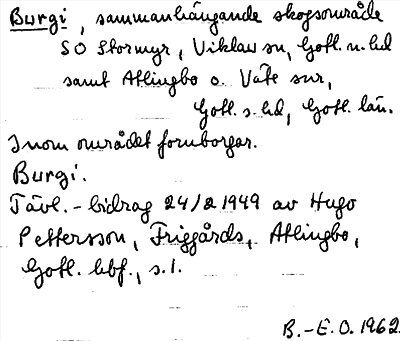 Burgi, sammanhängande skogsområde
SO Stormyr, Viklau sn, Gotl. n. hd
samt Atlingbo o. Väte snr,
Gotl. s. hd, Gotl. län.
Inom området fornborgar.
Burgi.
Tävl.-bidrag 24/2 1949 av Hugo
Pettersson, Friggårds, Atlingbo,
Gotl. hbf., s. 1.
B.-E. O. 1962.